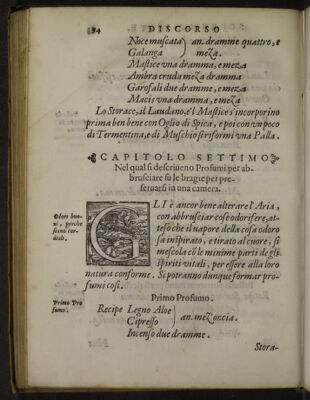 94 DISCORSO
Noce muscata } an. dramme quattro, e
Galanga meza.
Mastice vna dramma, e meza
Ambra cruda meza dramma
Garofali due dramme, e meza
Macis vna dramma, e meza
Lo Storace, il Laudano, e'l Mastice s'incorporino
prima ben bene con Oglio di Spica, e poi con vn poco
di Termentina, e di Muschio si riformi vna Palla.
CAPITOLO SETTIMO
Nel qual si descriueno Profumi per ab-
brusciare su le bragie per pre-
seruarsi in vna camera.
GLI è ancor bene alterare l'Aria,
con abbrusciar cose odorifere, at-
teso che il uapore della cosa odoro
sa inspirato, e tirato al cuore, si
mescola cõ le minime parti de gli
spiriti vitali, per essere alla loro
natura conforme. Si potranno dunque formar pro-
fumi cosi.
Odori buo-
ni, perche
siano cor-
diali.
Primo Profumo.
Primo Pro
fumo.
Recipe Legno Aloe } an. mez' oncia.
Cipresso
Incenso due dramme.
Stora-